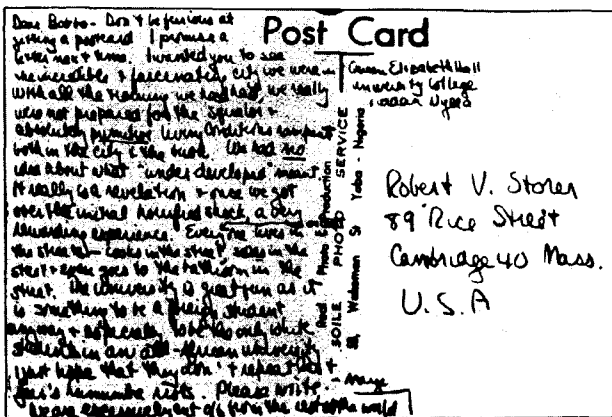 Dear Bobbo - Don't be furious at
getting a postcard. I promise a
letter next time. I wanted you to see
the incredible & fascinating city we were in
With all the training we had had, we really
were not prepared for the squalor &
absolutely primitive living conditions rampant
both in the city & the bush. We had no
idea about what "under developed" meant.
It really is a revelation & once we got
over the initial horrified shock, a very
rewarding experience. Everyone lives in
the streets - cooks in the street, sells in the
street & even goes to the bathroom in the
street. The university is great fun as it
is something to be a foreign student
anyway & especially to be the only white
students in an all-African university.
I just hope that they don't repeat last
year's riots. Please write - Marge
We are excessively cut off from the rest of the world
Post Card
Queen Elizabeth Hall
University College
Real Photo Production
SOILE PHOTO SERVICE
St Yaba - Nigeria
Robert V. Storer
89 Rice Street
Cambridge 40 Mass.
U.S.A